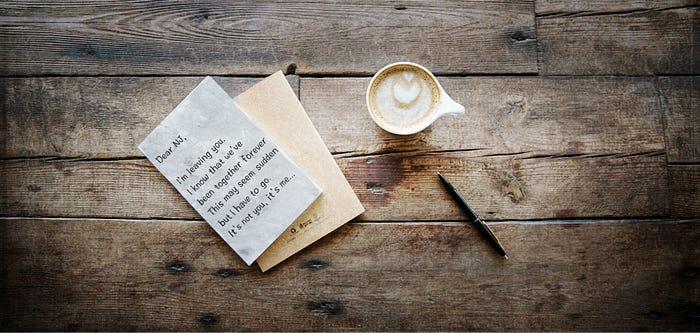 Dear NJ,
I'm leaving you.
I know that we've
been together forever
This may seem sudden
but I have to go.
It's not you, it's me...